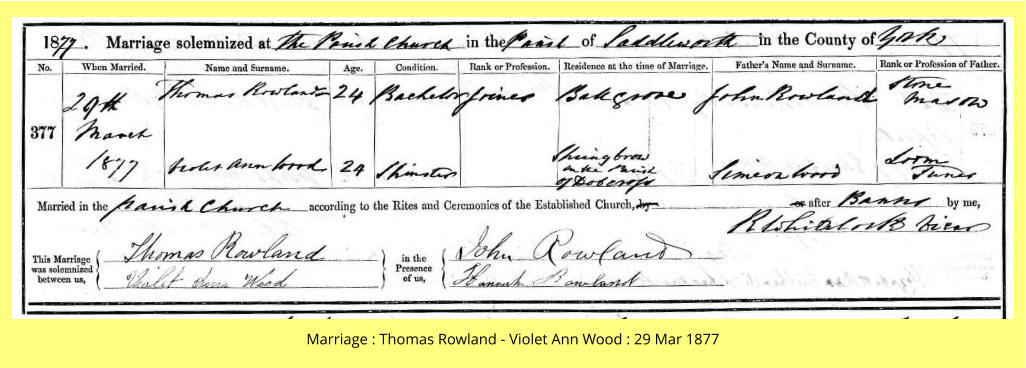 1877. Marriage solemnized at The Parish Church in the Parish of Saddleworth in the County of York
No. When Married. Name and Surname. Age. Condition. Rank or Profession. Residence at the time of Marriage. Father's Name and Surname. Rank or Profession of Father.
377 29th March 1877 Thomas Rowland 24 Bachelor Joiner John Rowland Stone Mason
Violet Ann Wood 24 Spinster in the Parish of Dobcross Simeon Wood Loom Tuner
Married in the Parish Church according to the Rites and Ceremonies of the Established Church, by or after Banns by me,
R Whitelock Vicar
This Marriage was solemnized between us, Thomas Rowland in the Presence of us, John Rowland
Violet Ann Wood Hannah Rowland
Marriage : Thomas Rowland - Violet Ann Wood : 29 Mar 1877